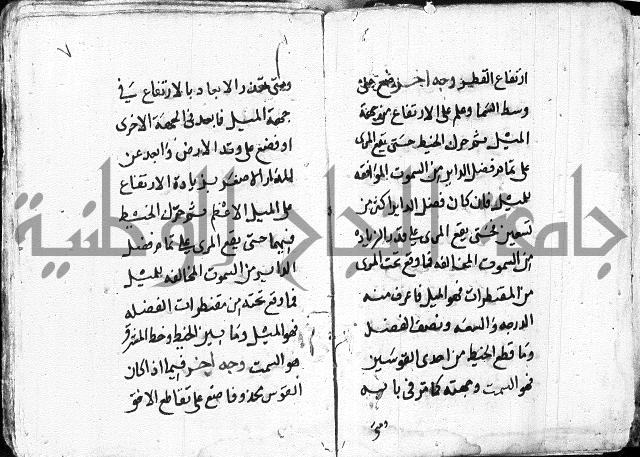 ارتفاع القطر وجه اخر ضع على
وسط السما وعلم على الارتفاع من جهة
الميل ثم حرك الخيط حتى يقع المرى
على تمام فضل الداير من السموت الموافقة
للميل فان كان فضل الداير اكثر من
تسعين فحتى يقع المرى على قدر الزيادة
من السموت المخالفه فما وقع تحت المرى
من المقنطرات فهو الميل فاعرف منه
الدرجه والسعه ونصف الفضل
وما قطع الخيط من احدى القوسين
فهو السمت وجهته كما مر في بابه
ومتى
٧
ومتى تعذر الايجاد بالارتفاع في
جهة الميل فابعد في الجهة الاخرى
او فضع على وتد الارض وابعد عن
المدار الاصغر بزيادة الارتفاع
على الميل الاعظم ثم حرك الخيط
فيهما حتى يقع المرى على تمام فضل
الداير من السموت المخالفه للميل
فما وقع تحته من مقنطرات الفضله
فهو الميل وما بين الخيط وخط المشرق
هو السمت وجه اخر فيما اذا كان
القوس محذوفا ضع على تقاطع الافق
جامعة النجاح الوطنية